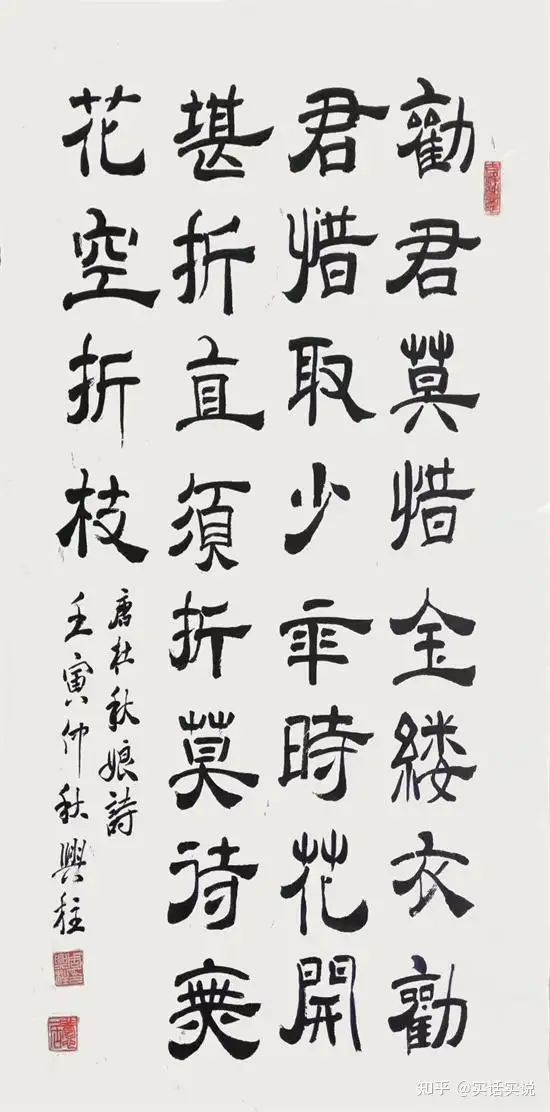 勸君莫惜金縷衣勸
君惜取少年時花開
堪折直須折莫待無
花空折枝
唐杜秋娘詩
壬寅仲秋興柱
知乎 @实话实说